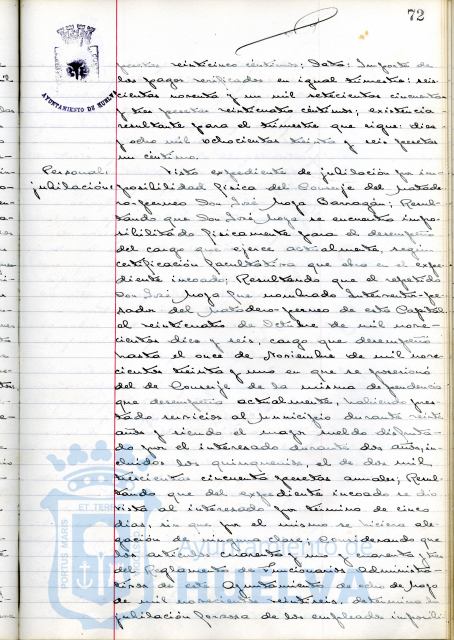 72
AYUNTAMIENTO DE HUELVA
pesetas veinticinco céntimos; Data: Importe de
los pagos verificados en igual trimestre: seis
cientas noventa y un mil setecientas cincuenta
y tres pesetas veinticuatro céntimos; existencia
resultante para el trimestre que sigue: diez
y ocho mil ochocientas treinta y seis pesetas
un céntimo.
Personal:
jubilación:
Visto expediente de jubilación por im-
posibilidad física del Conserje del Matade
ro-perneo Don José Moya Barragán; Resul-
tando que Don José Moya se encuentra impo-
sibilitado físicamente para el desempeño
del cargo que ejerce actualmente, según
certificación facultativa que obra en el expe-
diente incoado; Resultando que el repetido
Don José Moya fue nombrado Interventor-pe-
sador del Matadero-perneo de esta Capital
el veinticuatro de Octubre de mil nove-
cientos diez y seis, cargo que desempeñó
hasta el once de Noviembre de mil nove-
cientos treinta y uno en que se posesionó
del de Conserje de la misma dependencia
que desempeña actualmente, habiendo pres-
tado servicios al Municipio durante veinte
años y siendo el mayor sueldo disfruta-
do por el interesado durante dos años, in-
cluidos los quinquenios, el de dos mil
trescientas cincuenta pesetas anuales; Resul-
tando que del expediente incoado se dio
vista al interesado por término de cinco
días, sin que por el mismo se hiciera ale-
gación de ninguna clase; Considerando que
los artículos cuarenta y uno y cuarenta y tres
del Reglamento de Funcionarios Administra-
tivos de este Ayuntamiento de ocho de Mayo
de mil novecientos veintiseis, determina la
jubilación forzosa de los empleados imposibi-
Ayuntamiento de
HUELVA
PORTUS MARIS
ET TERRE